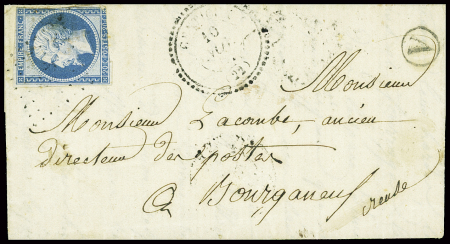 EMPIRE FRANC
20 C POSTES 20 C
10
(22)
D
Monsieur
Monsieur Lacombe, ancien
Directeur des postes
a Bourganeuf
creuse